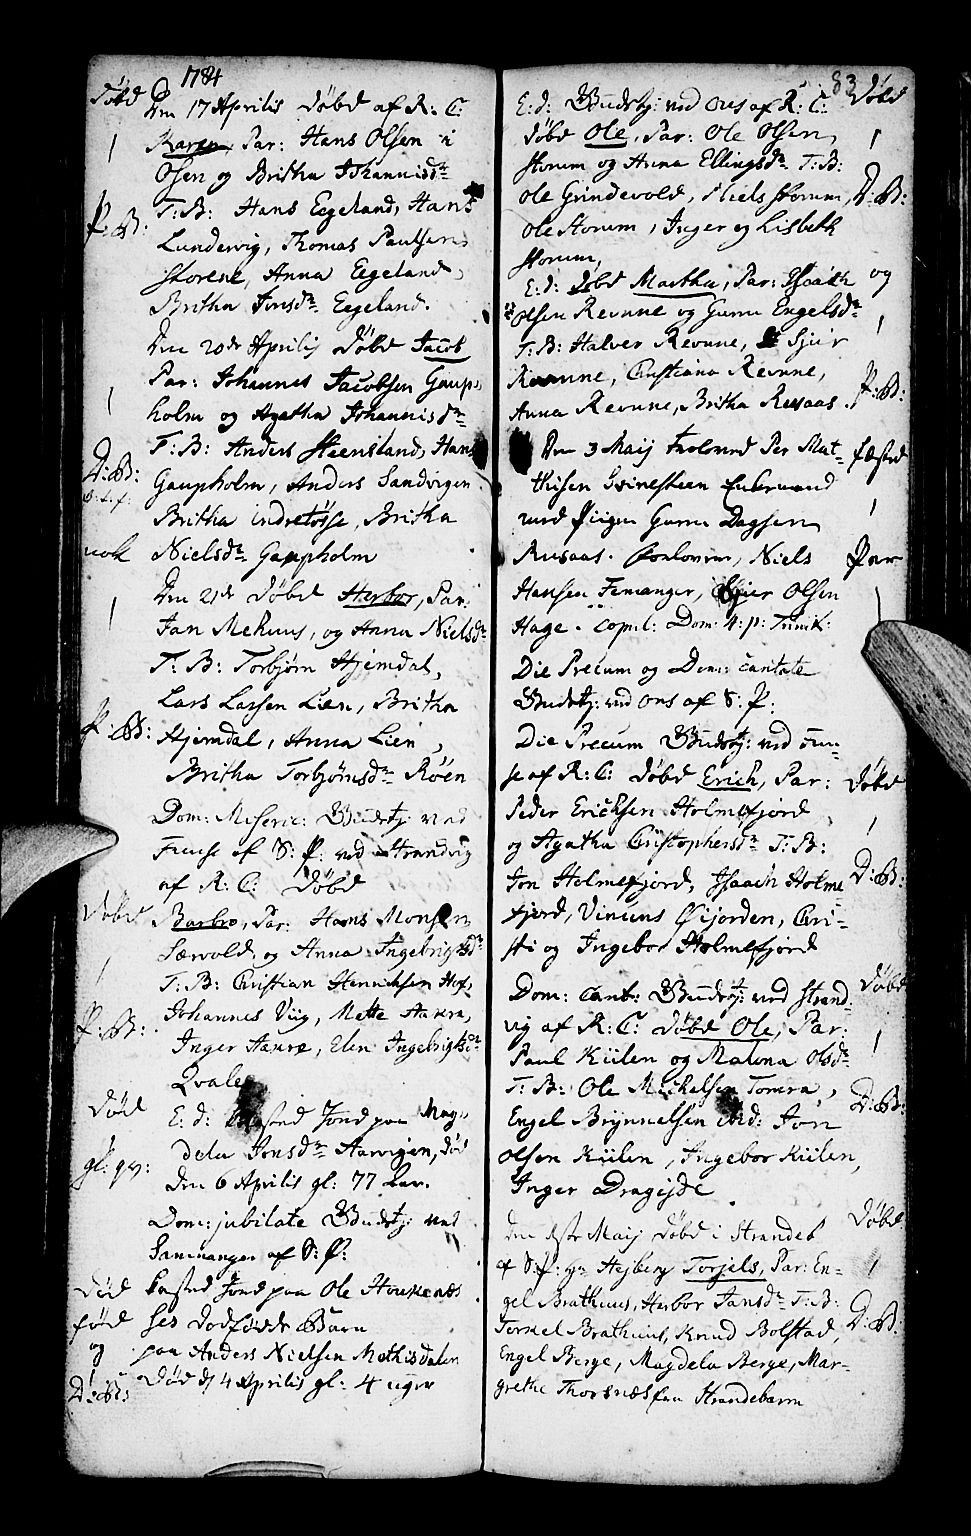 1784
Døbd Den 17 Aprilis Døbd af R: C:
1 Karen, Par: Hans Olsen i
Osen og Britha Johannisdr
P: B: T: B: Hans Eegeland, Hans
Lundervig, Thomas Paulsen
Skorene, Anna Eegeland,
Britha Jonsdr Eegeland.
Den 20de Aprilis Døbd Jacob
1 Par: Johannes Jacobsen Gaup-
holm og Agatha Johannisdr
T: B: Anders Steensland, Hans
D: B: Gaupholm, Anders Sandvigen
Britha Indretøsse, Britha
Nielsdr Gaupholm
Den 21de Døbd Herbor, Par:
1 Jan Mehuus, og Anna Nielsdr
T: B: Torbjørn Hjemdal,
Lars Larsen Lien, Britha
P: B: Hjemdal, Anna Lien,
Britha Torbjørnsdr Røen
Dom: Miseric: Gudstj: ved
Fuuse af S: P: ved Strandvig
af R: C: Døbd
Døbd Barbro, Par: Hans Monsen
1 Særvold, og Anna Ingebrigtsdr
T: B: Christian Henrichsen Hof,
P: B: Johannes Viig, Mette Aarre,
Inger Aarre, Elen Ingebrigtsdr
Qvale
Død E: d: kasted Jord paa Mag-
gl: qv: dela Jonsdr Aarvigen, død
den 6 Aprilis gl: 77 Aar.
Dom: jubilate Gudstj: ved
Samnanger af S: P:
Død kasted Jord paa Ole Houkenæs
fød ses Dødfødde Barn
og paa Anders Nielsen Mathisdalen
D: B: Død d 4 Aprilis gl: 4 uger
83
E: d: Gudstj: ved Ous af R: C: Døbd
Døbd Ole, Par: Ole Olsen 1
Skorum og Anna Ellingsdr T: B:
Ole Grindevold, Niels Skorum, D: B:
Ole Skorum, Inger og Lisbeth
Skorum,
E: d: Døbd Martha, Par: Isaach og
Olsen Revnne og Guru Engelsdr 1
T: B: Halver Revnne, Sjur
Revnne, Christiana Revnne, P: B:
Anna Revnne, Britha Russaas.
Den 3 Maij trolovd Per Mat- fæsted
thisen Svinesteen Enkemand 1
med Pigen Guru Dagsen
Russaas. Forlovere, Niels Par
Hansen Femanger, Sjur Olsen 1
Hage. Copul: Dom: 4: p: Trinit:
Die Precum og Dom: Cantate
Gudstj: ved Ous af S: P:
Die Precum Gudstj: ved Fuu-
se af R: C: Døbd Erich, Par: Døbd
Peder Erichsen Holmefjord 1
og Agatha Christophersdr T: B:
Jon Holmefjord, Isaach Holme D: B:
fjord, Vincens Øijorden, Chri-
sti og Ingebor Holmefjord
Dom: Cant: Gudstj: ved Strand- Døbd
vig af R: C: Døbd Ole, Par: 1
Paul Kiilen og Malena Olsdr
T: B: Ole Michelsen Tomra, D: B:
Engel Brynnielsen ibid: Jon
Olsen Kiilen, Ingebor Kiilen,
Inger Dragejde
Den 1ste Maij Døbd i Strandeb Døbd
af S: P: Hr Hejberg Torjels, Par: En- 1
gel Brathuus, Herbor Jansdr T: B:
Torkel Brathuus, Knud Bolstad, D: B:
Engel Berge, Magdela Berge, Mar-
grethe Thorsnæs fra Strandebarm